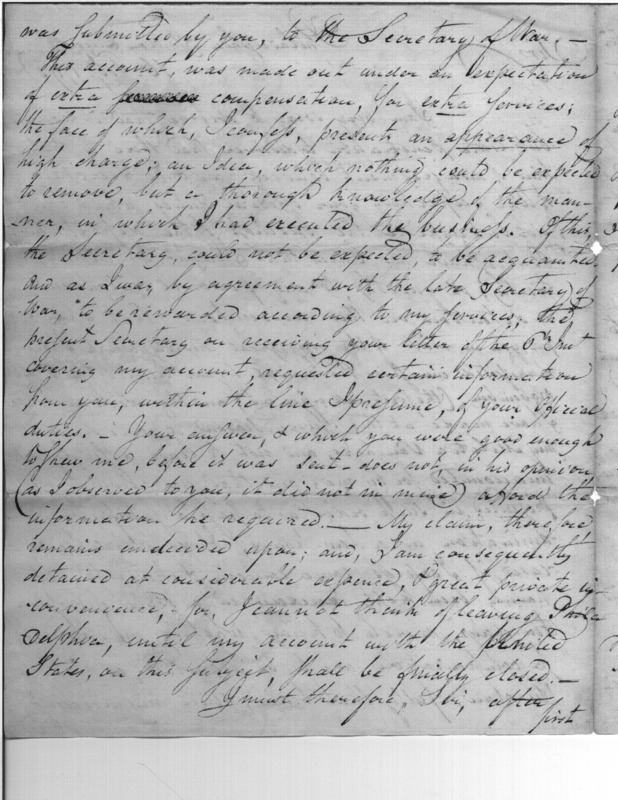 was submitted by you, to the Secretary of War, —
This account, was made out under an expectation
of extra compensation, for extra services;
the face of which, I confess, presents an appearance of
high charge; an Idea, which nothing could be expected
to remove, but a thorough knowledge of the man-
-ner, in which I had executed the business. Of this,
the Secretary, could not be expected, to be acquainted
And as I was, by agreement with the late Secretary of
War, "to be rewarded according to my services; the
present Secretary on receiving your letter of the
covering my account, requested certain information
from you, within the line I presume, of your Official
duties. — Your answer, & which you were good enough
to shew me, before it was sent - does not, in his opinion
(as I observed to you, it did not in mine) afford the
information he required. — My claim, therefore
remains undecided upon; and, I am consequently
detained at considerable expence, & great private in-
-convenience, - for, I cannot think of leaving Phila
delphia, until my account with the United
States, on this subject, shall be finally closed. —
I must therefore, Sir, after
first